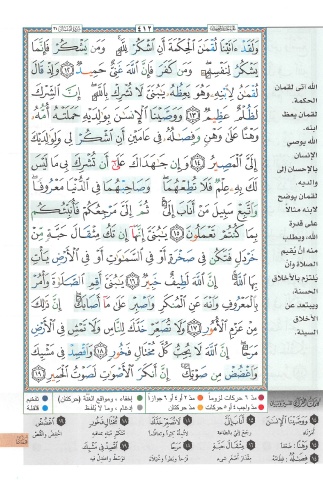 ٤١٢
وَلَقَدْ ءَاتَيْنَا لُقْمَٰنَ ٱلْحِكْمَةَ أَنِ ٱشْكُرْ لِلَّهِ ۚ وَمَن يَشْكُرْ فَإِنَّمَا
يَشْكُرُ لِنَفْسِهِۦ ۖ وَمَن كَفَرَ فَإِنَّ ٱللَّهَ غَنِىٌّ حَمِيدٌ ١٢ وَإِذْ قَالَ
لُقْمَٰنُ لِٱبْنِهِۦ وَهُوَ يَعِظُهُۥ يَٰبُنَىَّ لَا تُشْرِكْ بِٱللَّهِ ۖ إِنَّ ٱلشِّرْكَ
لَظُلْمٌ عَظِيمٌ ١٣ وَوَصَّيْنَا ٱلْإِنسَٰنَ بِوَٰلِدَيْهِ حَمَلَتْهُ أُمُّهُۥ
وَهْنًا عَلَىٰ وَهْنٍ وَفِصَٰلُهُۥ فِى عَامَيْنِ أَنِ ٱشْكُرْ لِى وَلِوَٰلِدَيْكَ
إِلَىَّ ٱلْمَصِيرُ ١٤ وَإِن جَٰهَدَاكَ عَلَىٰٓ أَن تُشْرِكَ بِى مَا لَيْسَ
لَكَ بِهِۦ عِلْمٌ فَلَا تُطِعْهُمَا ۖ وَصَاحِبْهُمَا فِى ٱلدُّنْيَا مَعْرُوفًا ۖ
وَٱتَّبِعْ سَبِيلَ مَنْ أَنَابَ إِلَىَّ ۚ ثُمَّ إِلَىَّ مَرْجِعُكُمْ فَأُنَبِّئُكُم
بِمَا كُنتُمْ تَعْمَلُونَ ١٥ يَٰبُنَىَّ إِنَّهَآ إِن تَكُ مِثْقَالَ حَبَّةٍ مِّنْ
خَرْدَلٍ فَتَكُن فِى صَخْرَةٍ أَوْ فِى ٱلسَّمَٰوَٰتِ أَوْ فِى ٱلْأَرْضِ يَأْتِ
بِهَا ٱللَّهُ ۚ إِنَّ ٱللَّهَ لَطِيفٌ خَبِيرٌ ١٦ يَٰبُنَىَّ أَقِمِ ٱلصَّلَوٰةَ وَأْمُرْ
بِٱلْمَعْرُوفِ وَٱنْهَ عَنِ ٱلْمُنكَرِ وَٱصْبِرْ عَلَىٰ مَآ أَصَابَكَ ۖ إِنَّ ذَٰلِكَ
مِنْ عَزْمِ ٱلْأُمُورِ ١٧ وَلَا تُصَعِّرْ خَدَّكَ لِلنَّاسِ وَلَا تَمْشِ فِى ٱلْأَرْضِ
مَرَحًا ۖ إِنَّ ٱللَّهَ لَا يُحِبُّ كُلَّ مُخْتَالٍ فَخُورٍ ١٨ وَٱقْصِدْ فِى مَشْيِكَ
وَٱغْضُضْ مِن صَوْتِكَ ۚ إِنَّ أَنكَرَ ٱلْأَصْوَٰتِ لَصَوْتُ ٱلْحَمِيرِ ١٩
الله اتى لقمان
الحكمة
لقمان يعظ
ابنه.
الله يوصي
الإنسان
بالإحسان إلى
والديه.
لقمان يوضح
لابنه مثالاً
على قدرة
الله، ويطلب
منه أن يقيم
الصلاة وأن
يلتزم بالأخلاق
الحسنة،
ويبتعد عن
الأخلاق
السيئة.